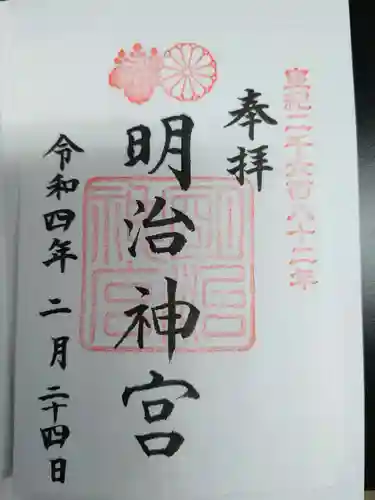 皇紀二千六百八十二年
奉拝
明治神宮
明治神宮
令和四年二月二十四日